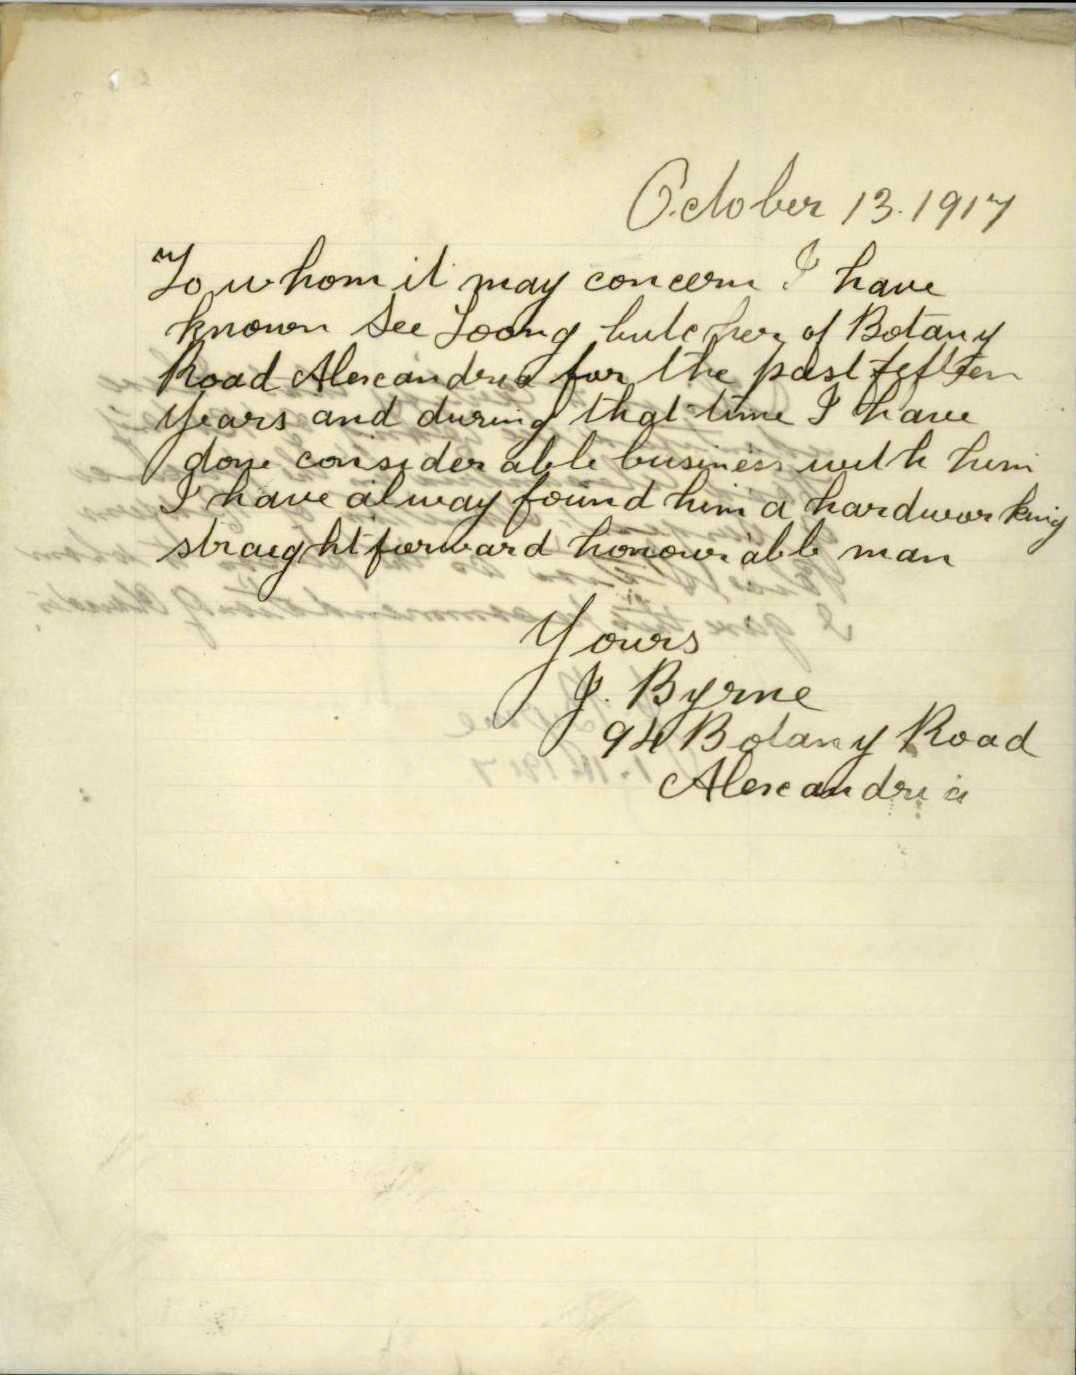 October 13. 1917
To whom it may concern I have
known See Loong butcher of Botany
Road Alexandria for the past fifteen
years and during that time I have
done considerable business with him
I have alway found him a hardworking
straightforward honourable man
Yours
J. Byrne
94 Botany Road
Alexandria